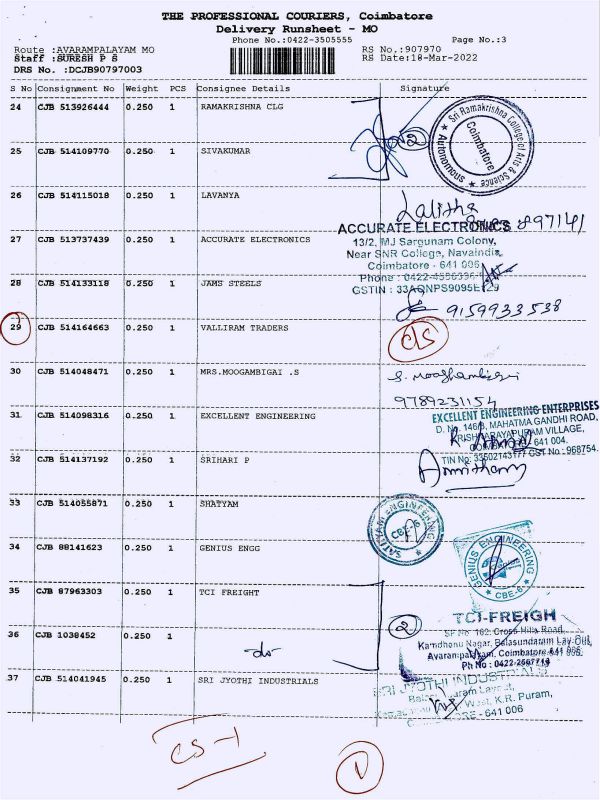 THE PROFESSIONAL COURIERS, Coimbatore
Delivery Runsheet - MO
Phone No.:0422-3505555 Page No.:3
Route :AVARAMPALAYAM MO RS No.:907970
Staff :SURESH P S RS Date:18-Mar-2022
DRS No. :DCJB90797003
S No Consignment No Weight PCS Consignee Details Signature
24 CJB 513926444 0.250 1 RAMAKRISHNA CLG
2
Sri Ramakrishna College of Arts & Science
Coimbatore
Autonomous
25 CJB 514109770 0.250 1 SIVAKUMAR
26 CJB 514115018 0.250 1 LAVANYA
Lalitha
897141
27 CJB 513737439 0.250 1 ACCURATE ELECTRONICS
ACCURATE ELECTRONICS
13/2, MJ Sargunam Colony,
Near SNR College, Navaindia,
Coimbatore - 641 006
Phone : 0422-
GSTIN :
28 CJB 514133118 0.250 1 JAMS STEELS
9159933538
29 CJB 514164663 0.250 1 VALLIRAM TRADERS
C/S
30 CJB 514048471 0.250 1 MRS.MOOGAMBIGAI .S
S. Moogambigai
9789231154
31 CJB 514098316 0.250 1 EXCELLENT ENGINEERING
EXCELLENT ENGINEERING ENTERPRISES
D. No. 146/3, MAHATMA GANDHI ROAD,
KRISHNARAYAPURAM VILLAGE,
641 004.
TIN No: CST No : 968754
32 CJB 514137192 0.250 1 SRIHARI P
33 CJB 514055871 0.250 1 SHATYAM
ENGINEERING
CBE-6
34 CJB 88141623 0.250 1 GENIUS ENGG
GENIUS ENGINEERING
CBE-6
35 CJB 87963303 0.250 1 TCI FREIGHT
TCI-FREIGH
SF No 162, Cross Hills Road,
Kamdhenu Nagar, Balasundaram Lay-Out,
Avarampalayam, Coimbatore-641 006
Ph No : 0422-2567713
36 CJB 1038452 0.250 1
do
2
37 CJB 514041945 0.250 1 SRI JYOTHI INDUSTRIALS
SRI JYOTHI INDUSTRIALS
Layout,
West, K.R. Puram,
- 641 006
CS-1